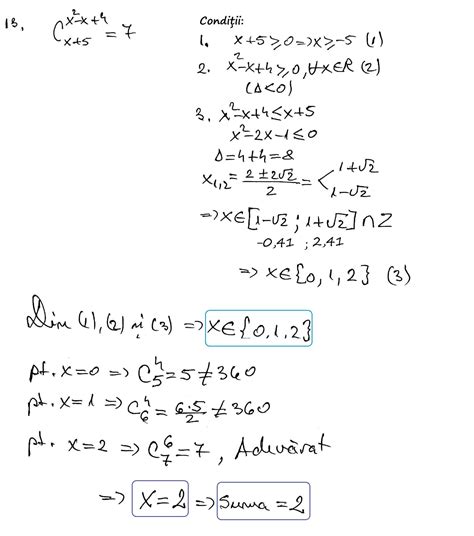 13. C_{x+5}^{x²-x+4} = 7
Condiții:
1. x+5⩾0 => x⩾-5 (1)
2. x²-x+4⩾0, ∀x∈R (2)
(Δ<0)
3. x²-x+4≤x+5
x²-2x-1≤0
Δ=4+4=8
x_{1,2} = \frac{2±2√2}{2} = < 1+√2
1-√2
=> x∈[1-√2 ; 1+√2]∩Z
-0,41 ; 2,41
=> x∈{0,1,2} (3)
Din (1),(2) și (3) => x∈{0,1,2}
pt. x=0 => C_5^4=5≠360
pt. x=1 => C_6^4=\frac{6·5}{2}≠360
pt. x=2 => C_7^6=7, Adevărat
=> x=2 => Suma=2